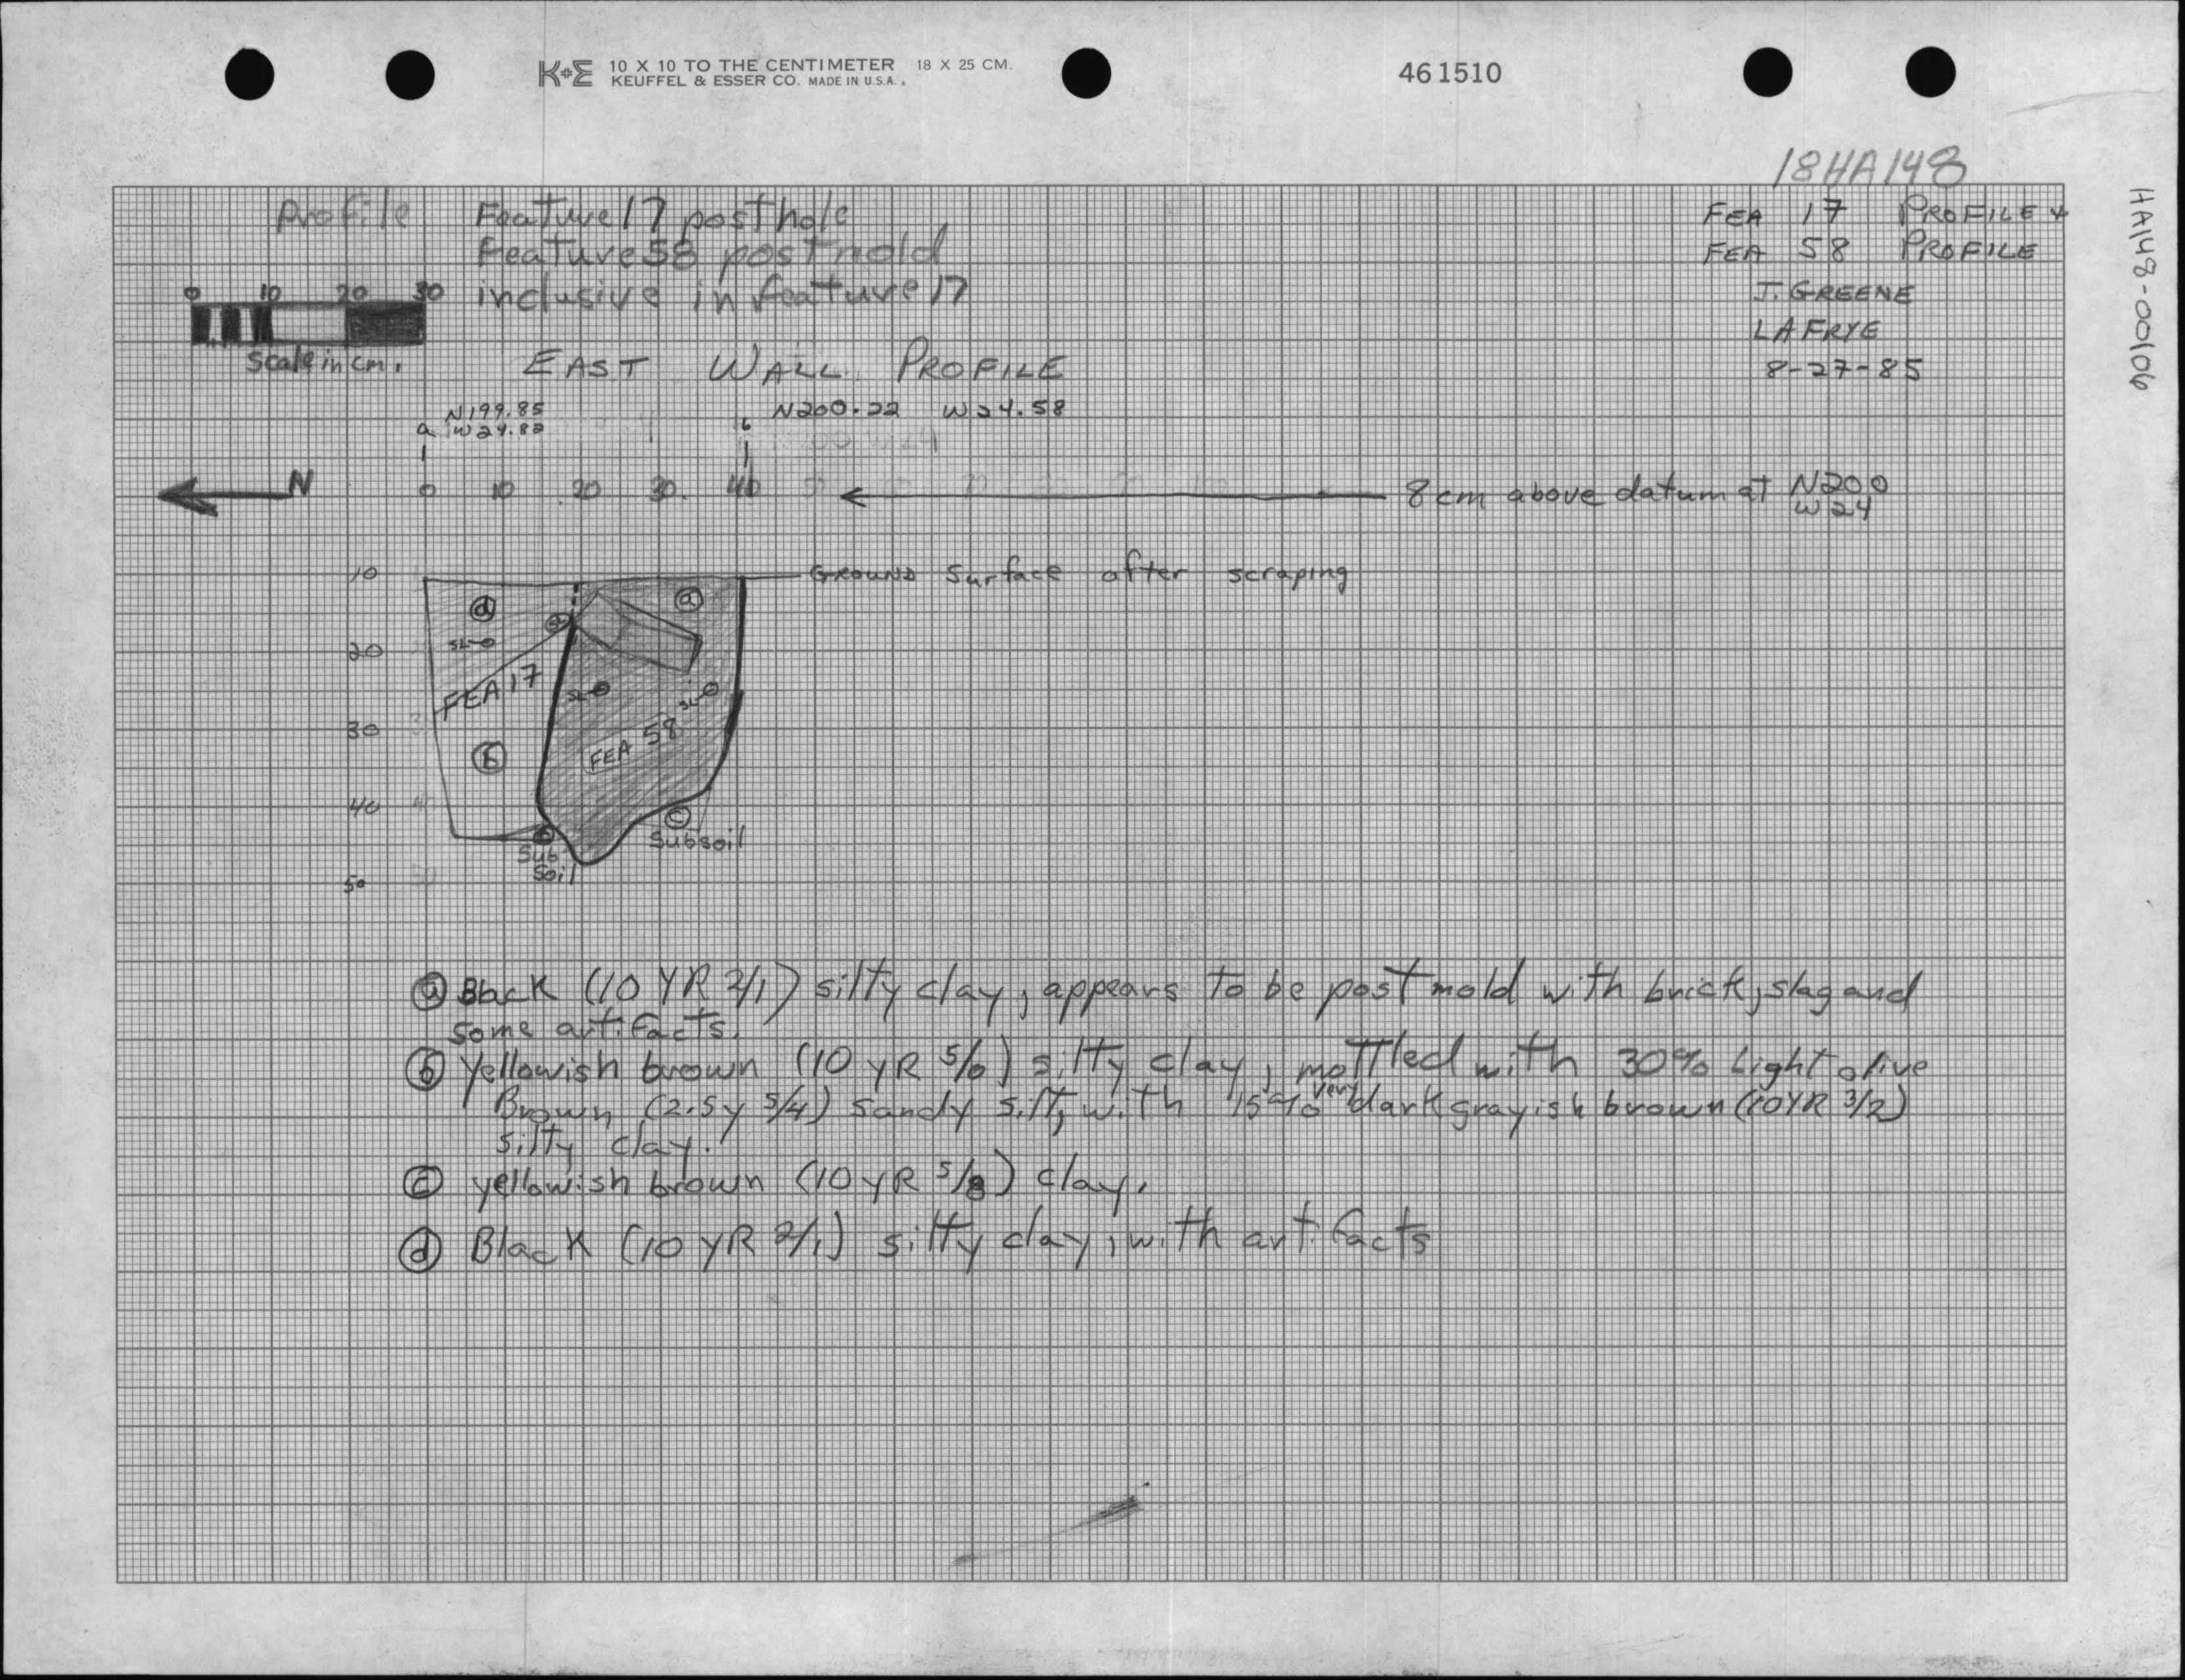 K+E 10 X 10 TO THE CENTIMETER 18 X 25 CM.
KEUFFEL & ESSER CO. MADE IN U.S.A.
461510
18HA148
HA148-00106
Profile Feature 17 posthole
Feature 58 post mold
inclusive in feature 17
FEA 17 PROFILE +
FEA 58 PROFILE
J. GREENE
LA FRYE
8-27-85
0 10 20 30
Scale in cm.
EAST WALL PROFILE
N199.85
a W24.82
N200.22 W24.58
b
N
0 10 20 30. 40
8cm above datum at N200
W24
10
GROUND Surface after scraping
d
a
SL
20
SL
FEA 17
SL
SL
30
FEA 58
b
40
c
c
Subsoil
Sub
Soil
50
a Black (10 YR 2/1) silty clay, appears to be post mold with brick, slag and
some artifacts.
b Yellowish brown (10 YR 5/6) silty clay, mottled with 30% Light olive
Brown (2.5y 5/4) sandy silt, with 15% very dark grayish brown (10YR 3/2)
silty clay.
c yellowish brown (10 YR 5/8) clay.
d Black (10 YR 2/1) silty clay, with artifacts